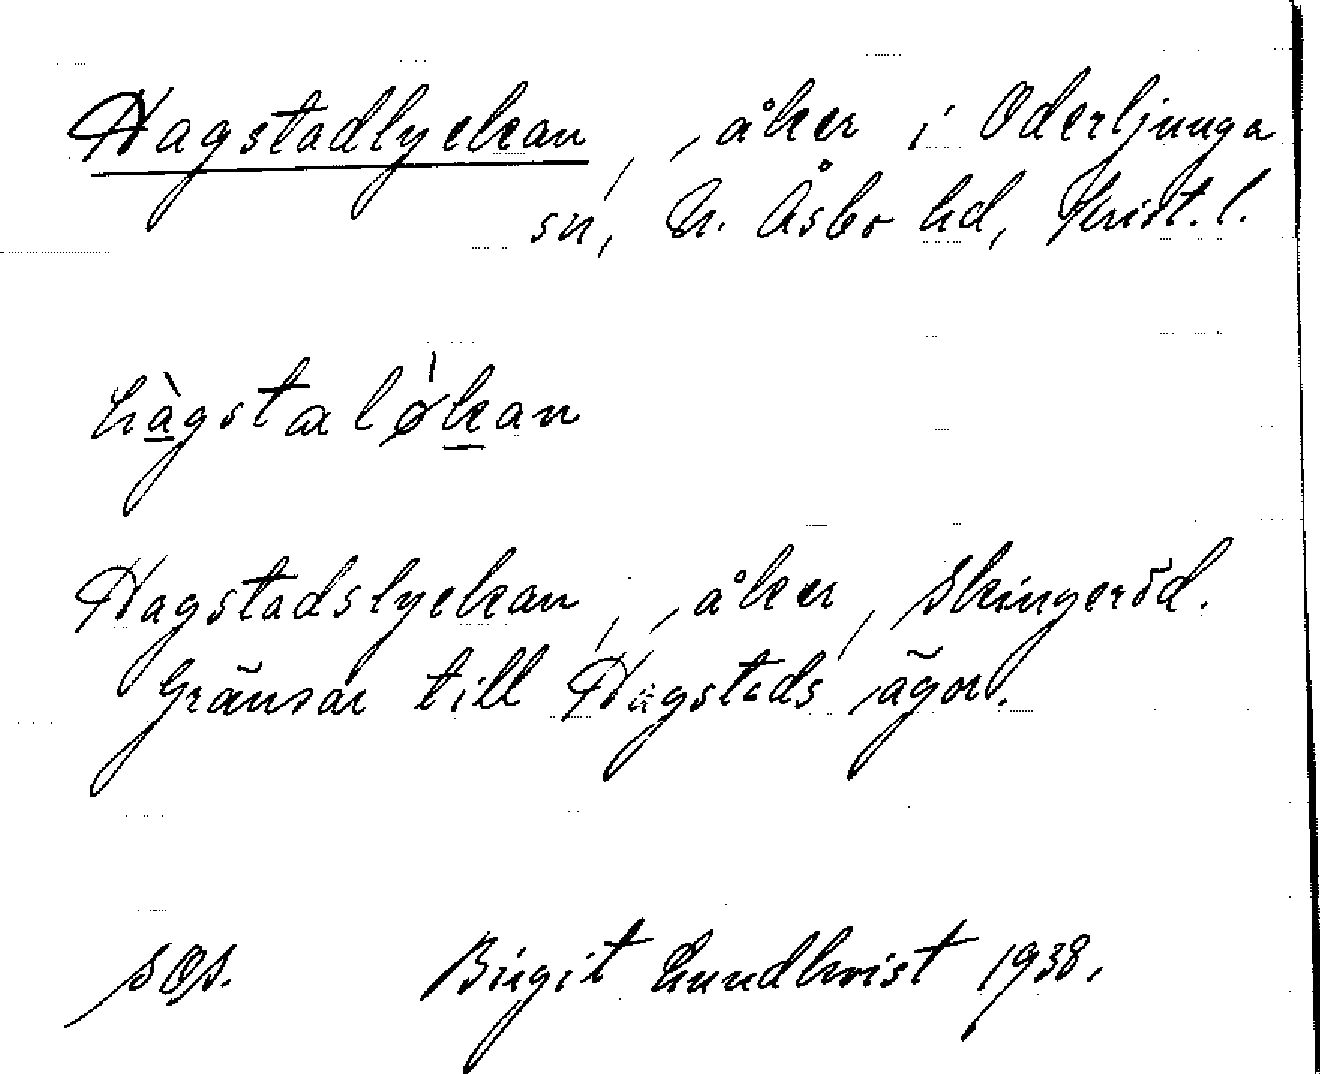 Hagstadlyckan, åker i Oderljunga
sn, N. Åsbo hd, Krist. l.
hàgstalø̍kan
Hagstadslyckan, åker, Skingeröd.
Gränsar till Hagstads ägor.
SOS. Birgit Lundkvist 1938.